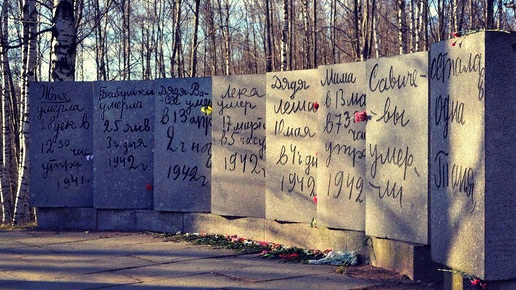 Женя
умерла
28 дек в
12 30
час
утра
1941г
Бабушка
умерла
25 янв
3ч дня
1942г
Дядя Ва
ся умер
в 13 апр
2ч ноч
1942г
Лека
умер
17 марта
в 5 часу
1942г
Дядя
Леша
10 мая
в 4ч дн
1942г
Мама
в 13 мая
в 7 30
час
утра
1942
Савиче-
вы
умер-
ли
осталась
одна
Таня